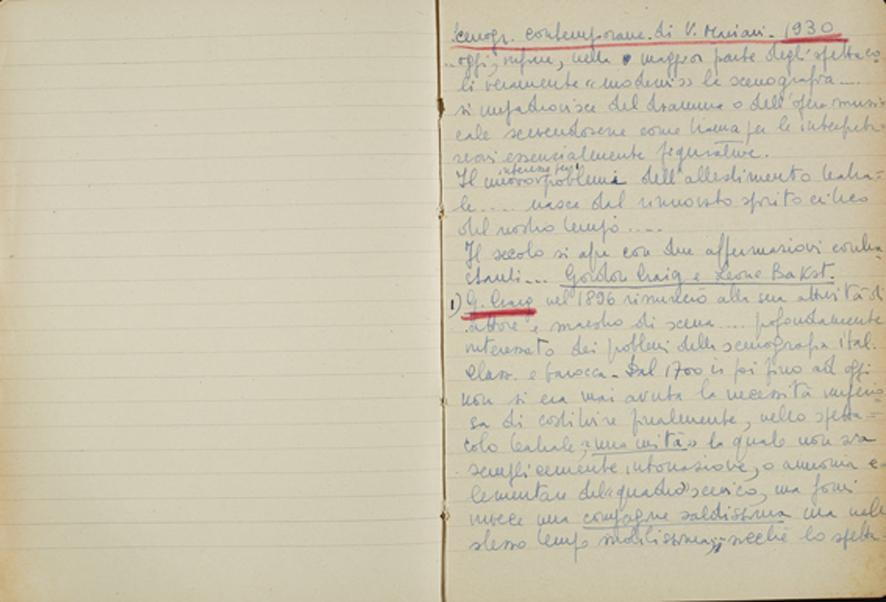 Scenogr. contemporanea di V. Mariani - 1930
..oggi, infine, nella maggior parte degli spettaco-
li veramente "moderni" la scenografia....
si impadronisce del dramma o dell'opera musi-
cale servendosene come trama per le interpreta-
zioni essenzialmente figurative.
Il interesse per i problemi dell'allestimento teatra=
le..... nasce dal rinnovato spirito critico
del nostro tempo.....
Il secolo si apre con due affermazioni contra-
stanti... Gordon Craig e Leone Bakst.
1) G. Craig nel 1896 rinunciò alla sua attività di
attore e maestro di scena.... profondamente
interessato dei problemi della scenografia ital.
class. e barocca - Dal 1700 in poi fino ad oggi
non si era mai avuta la necessità imperio-
sa di costituire finalmente, nello spetta=
colo teatrale, "una unità" la quale non sia
semplicemente intonazione, o armonia e-
lementare del quadro scenico, ma formi
invece una compagine saldissima ma nello
stesso tempo mobilissima, sicché lo spetta-